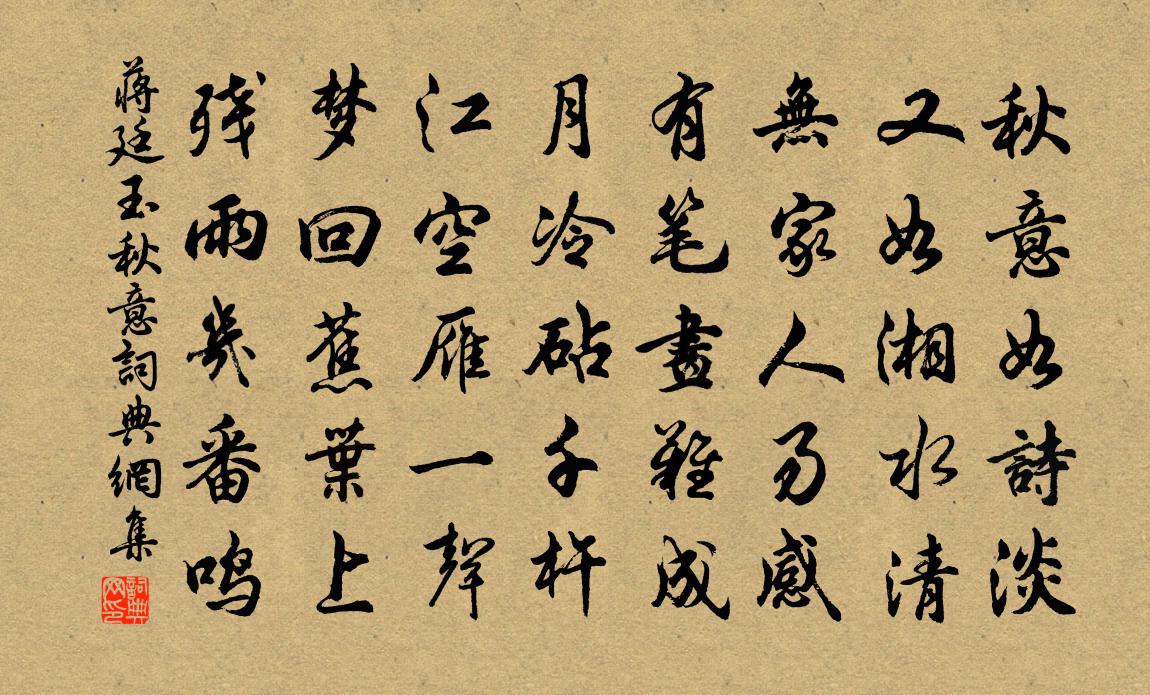 秋意如詩淡
又如湘水清
無家人易感
有笔畫難成
月冷砧千杵
江空雁一聲
梦回蕉葉上
残雨幾番鸣
蔣廷玉秋意詞典網集
詞典网印